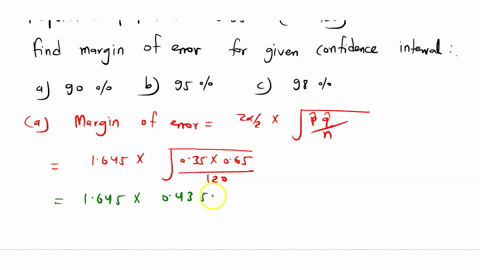 find margin of error for given confidence interval:
a) 90 % b) 95 % c) 98 %
(a) Margin of error = Zα/2 × √ p̂ q̂ / n
= 1.645 × √ 0.35 × 0.65 / 120
= 1.645 × 0.435